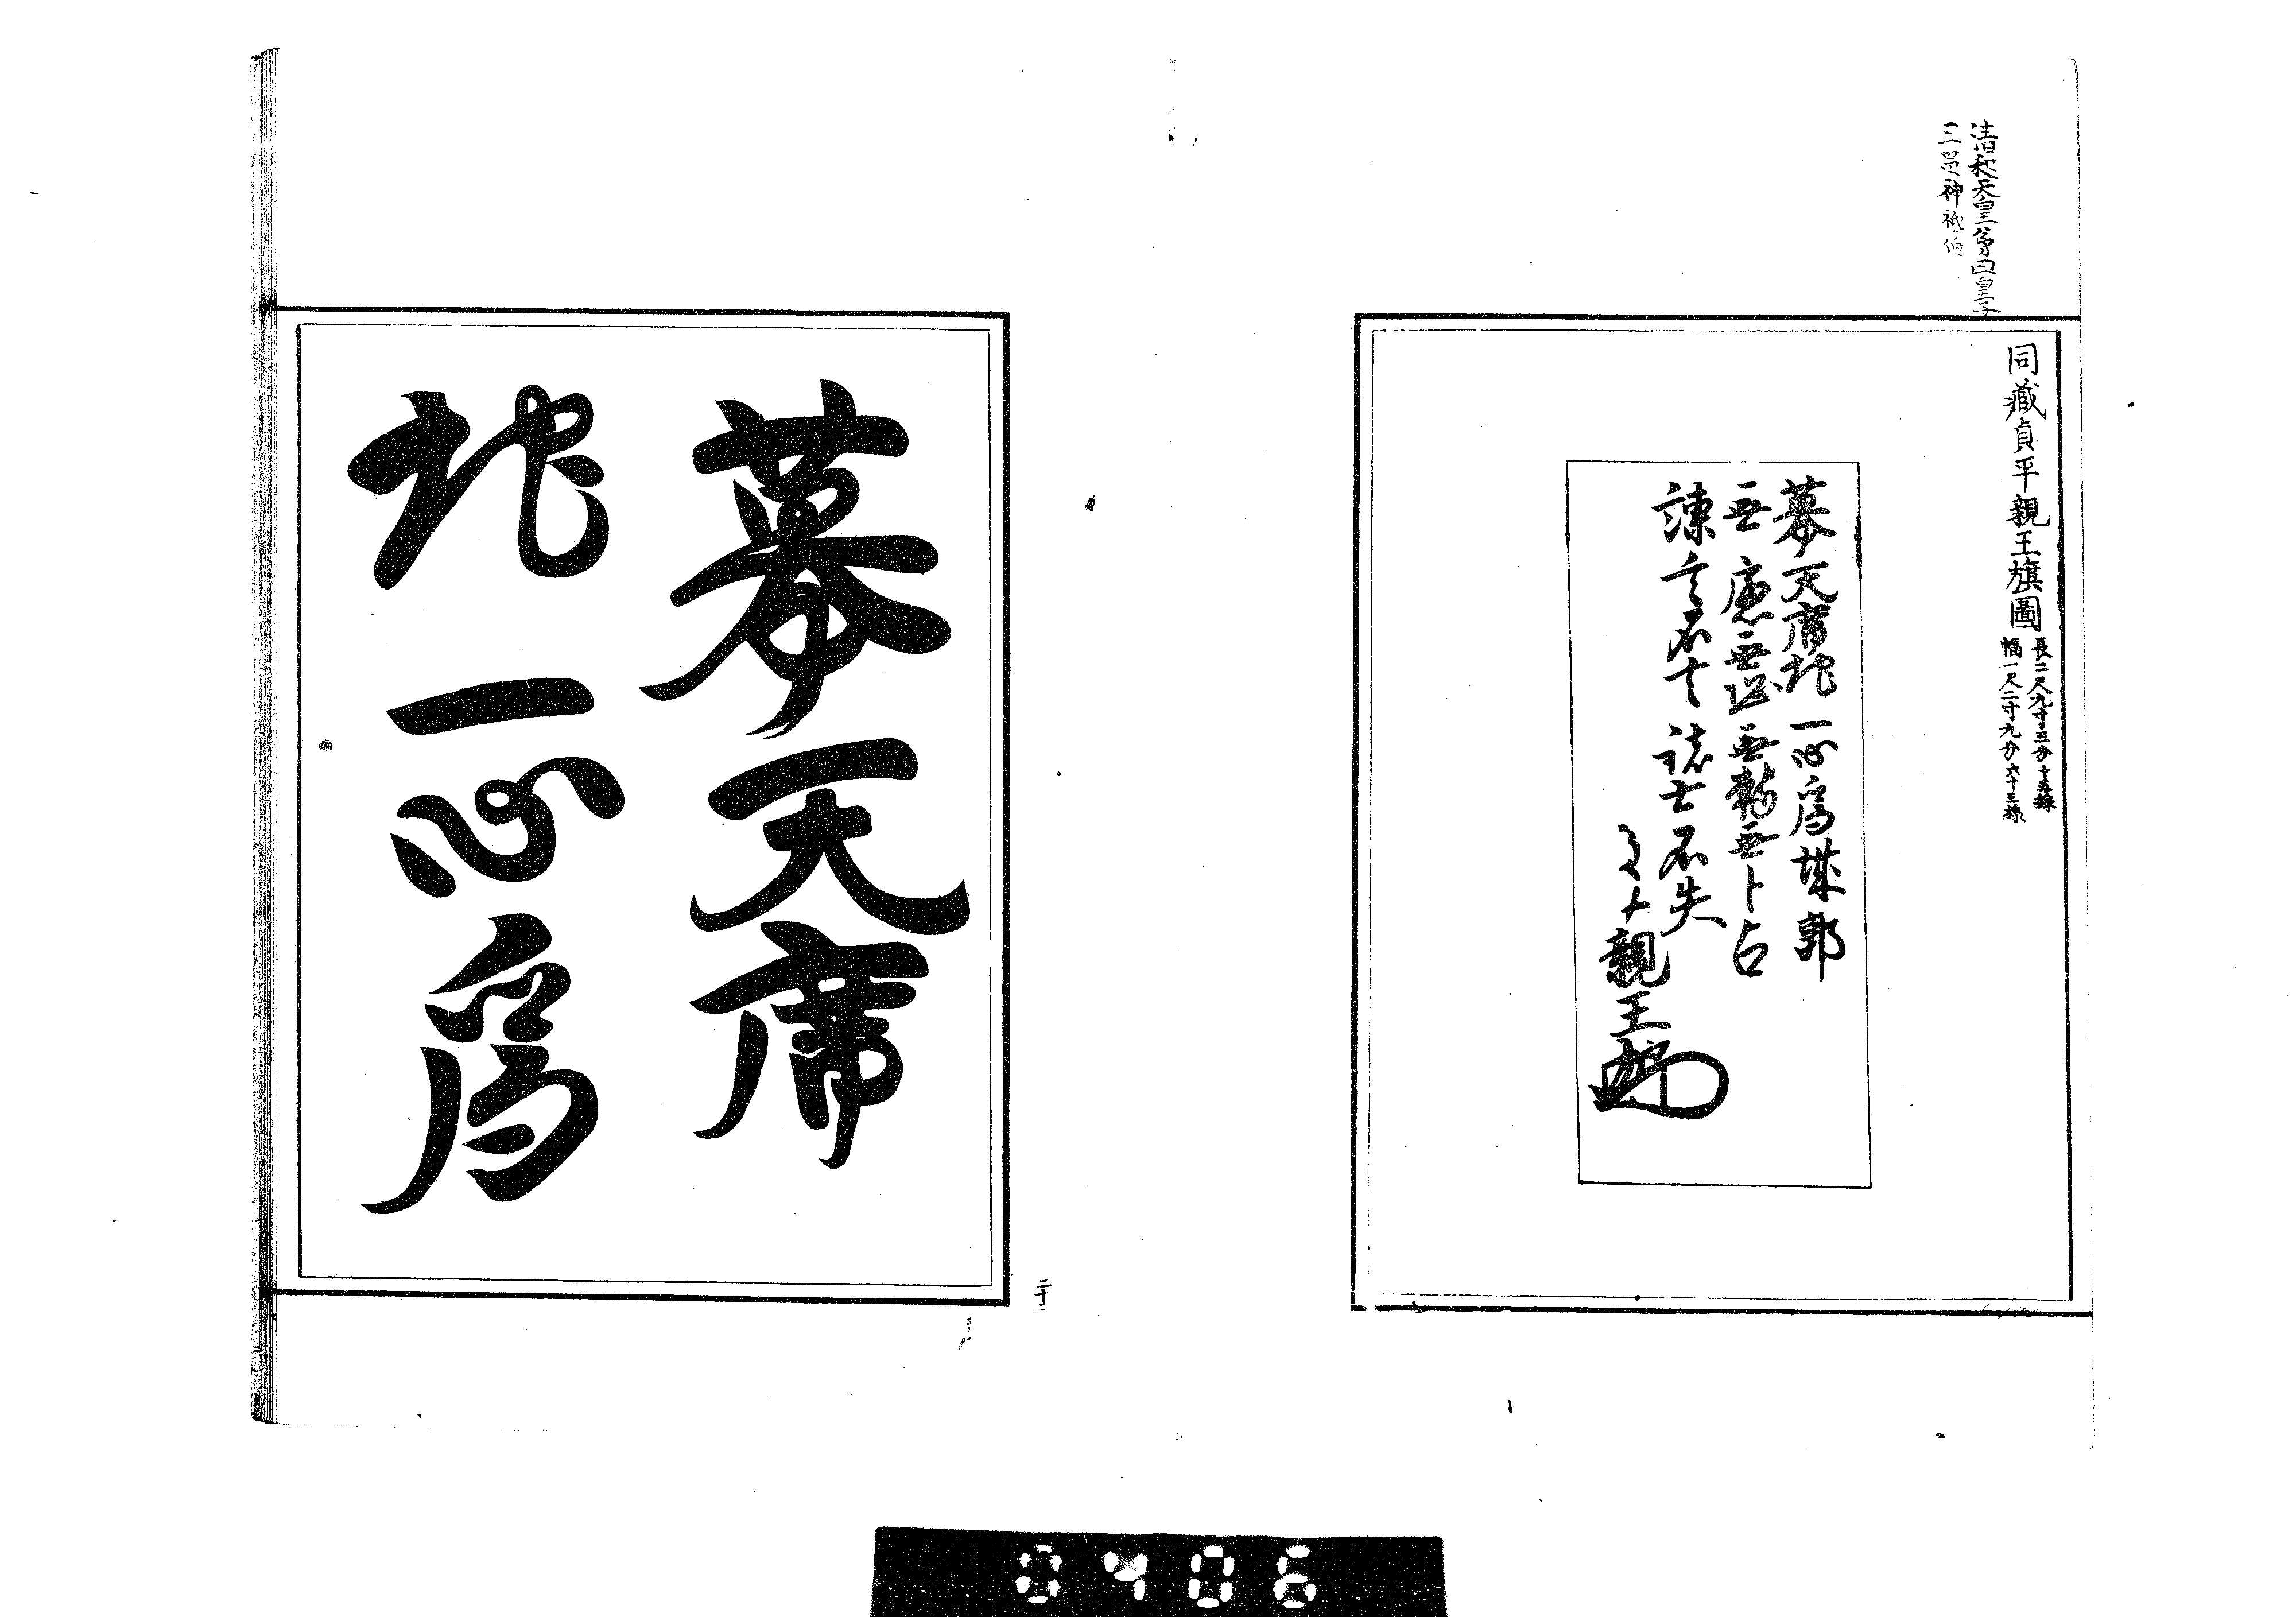 清和天皇第四皇子
三品神祇伯
同藏貞平親王旗圖
長二尺九寸三分十五線
幅一尺二寸九分六十三線
幕天席地一心為城郭
無慮無無無卜占
諫言不士不失
親王
幕天席
地一心為
二十
0406